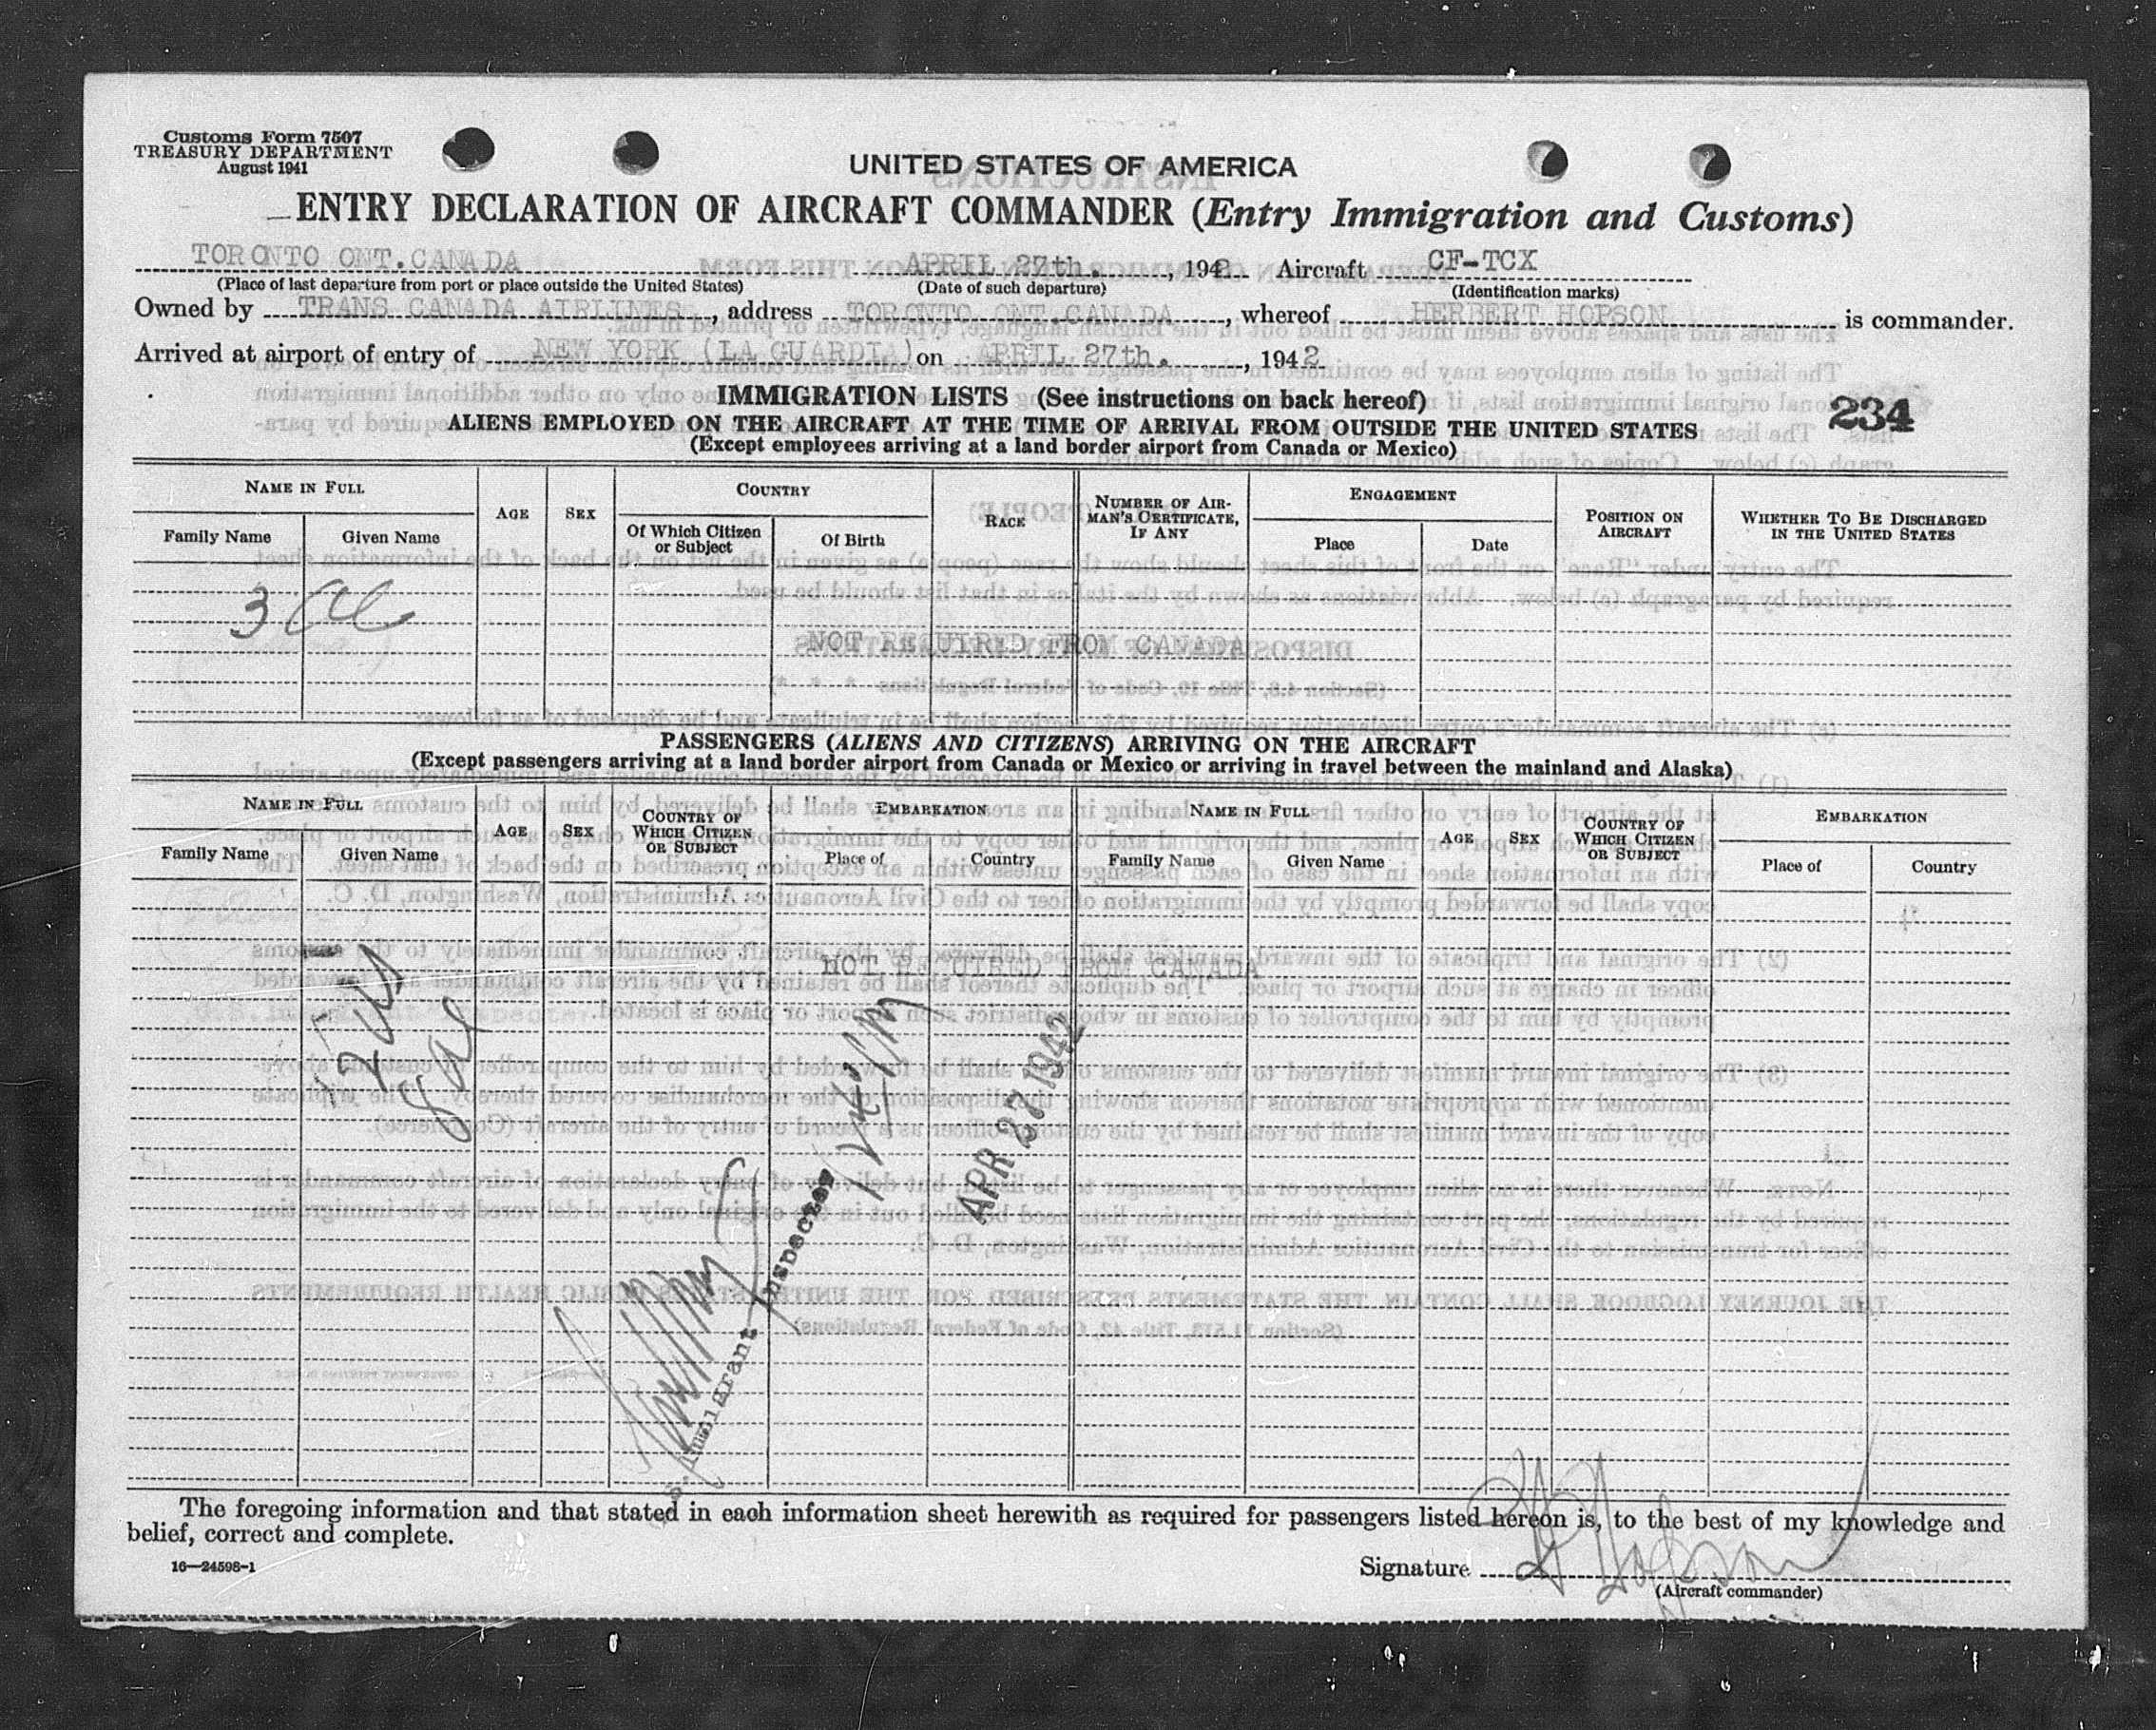 Customs Form 7507
TREASURY DEPARTMENT
August 1941
UNITED STATES OF AMERICA
ENTRY DECLARATION OF AIRCRAFT COMMANDER (Entry Immigration and Customs)
TORONTO ONT. CANADA APRIL 27th. , 1942 Aircraft CF-TCX
(Place of last departure from port or place outside the United States) (Date of such departure) (Identification marks)
Owned by TRANS CANADA AIRLINES , address TORONTO ONT. CANADA , whereof HERBERT HOPSON is commander.
Arrived at airport of entry of NEW YORK (LA GUARDIA) on APRIL 27th. , 1942
IMMIGRATION LISTS (See instructions on back hereof)
234
ALIENS EMPLOYED ON THE AIRCRAFT AT THE TIME OF ARRIVAL FROM OUTSIDE THE UNITED STATES
(Except employees arriving at a land border airport from Canada or Mexico)
NAME IN FULL AGE SEX COUNTRY RACE NUMBER OF AIRMAN'S CERTIFICATE, IF ANY ENGAGEMENT POSITION ON AIRCRAFT WHETHER TO BE DISCHARGED IN THE UNITED STATES
Family Name Given Name Of Which Citizen or Subject Of Birth Place Date
3
NOT REQUIRED FROM CANADA
PASSENGERS (ALIENS AND CITIZENS) ARRIVING ON THE AIRCRAFT
(Except passengers arriving at a land border airport from Canada or Mexico or arriving in travel between the mainland and Alaska)
NAME IN FULL AGE SEX COUNTRY OF WHICH CITIZEN OR SUBJECT EMBARKATION NAME IN FULL AGE SEX COUNTRY OF WHICH CITIZEN OR SUBJECT EMBARKATION
Family Name Given Name Place of Country Family Name Given Name Place of Country
NOT REQUIRED FROM CANADA
APR 27 1942
Immigrant Inspector
The foregoing information and that stated in each information sheet herewith as required for passengers listed hereon is, to the best of my knowledge and
belief, correct and complete.
16—24598-1
Signature H Hopson
(Aircraft commander)